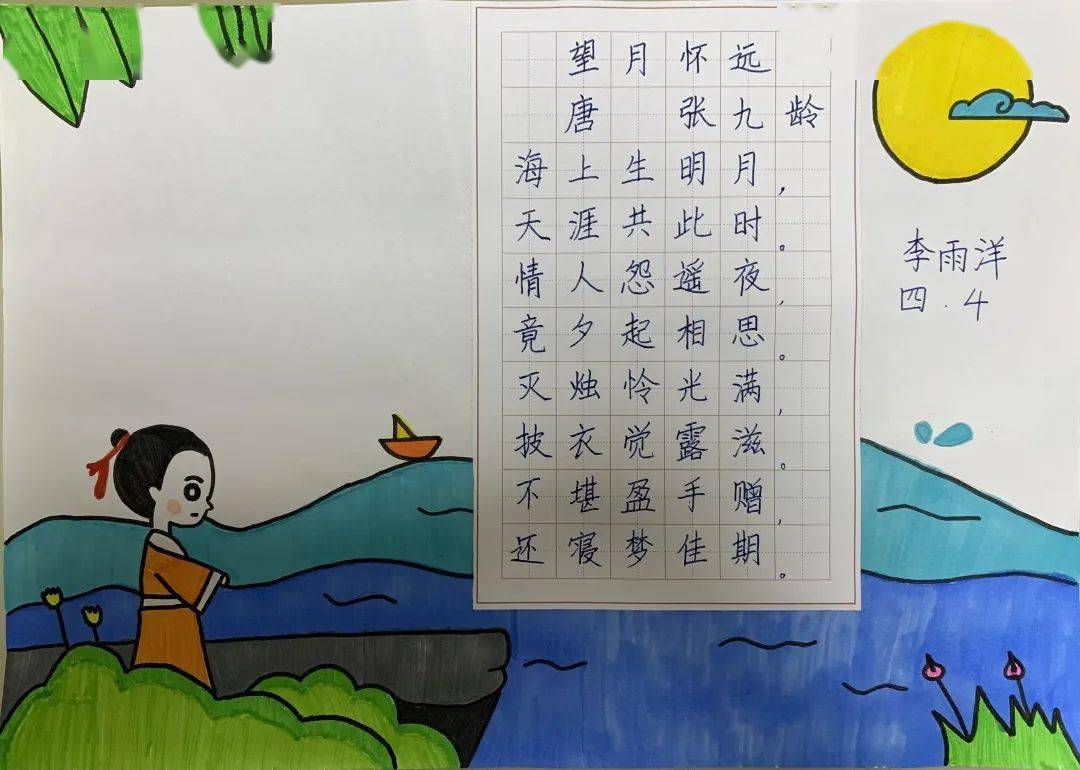 望月怀远
唐 张九龄
海上生明月，
天涯共此时。
情人怨遥夜，
竟夕起相思。
灭烛怜光满，
披衣觉露滋。
不堪盈手赠，
还寝梦佳期。
李雨洋
四.4